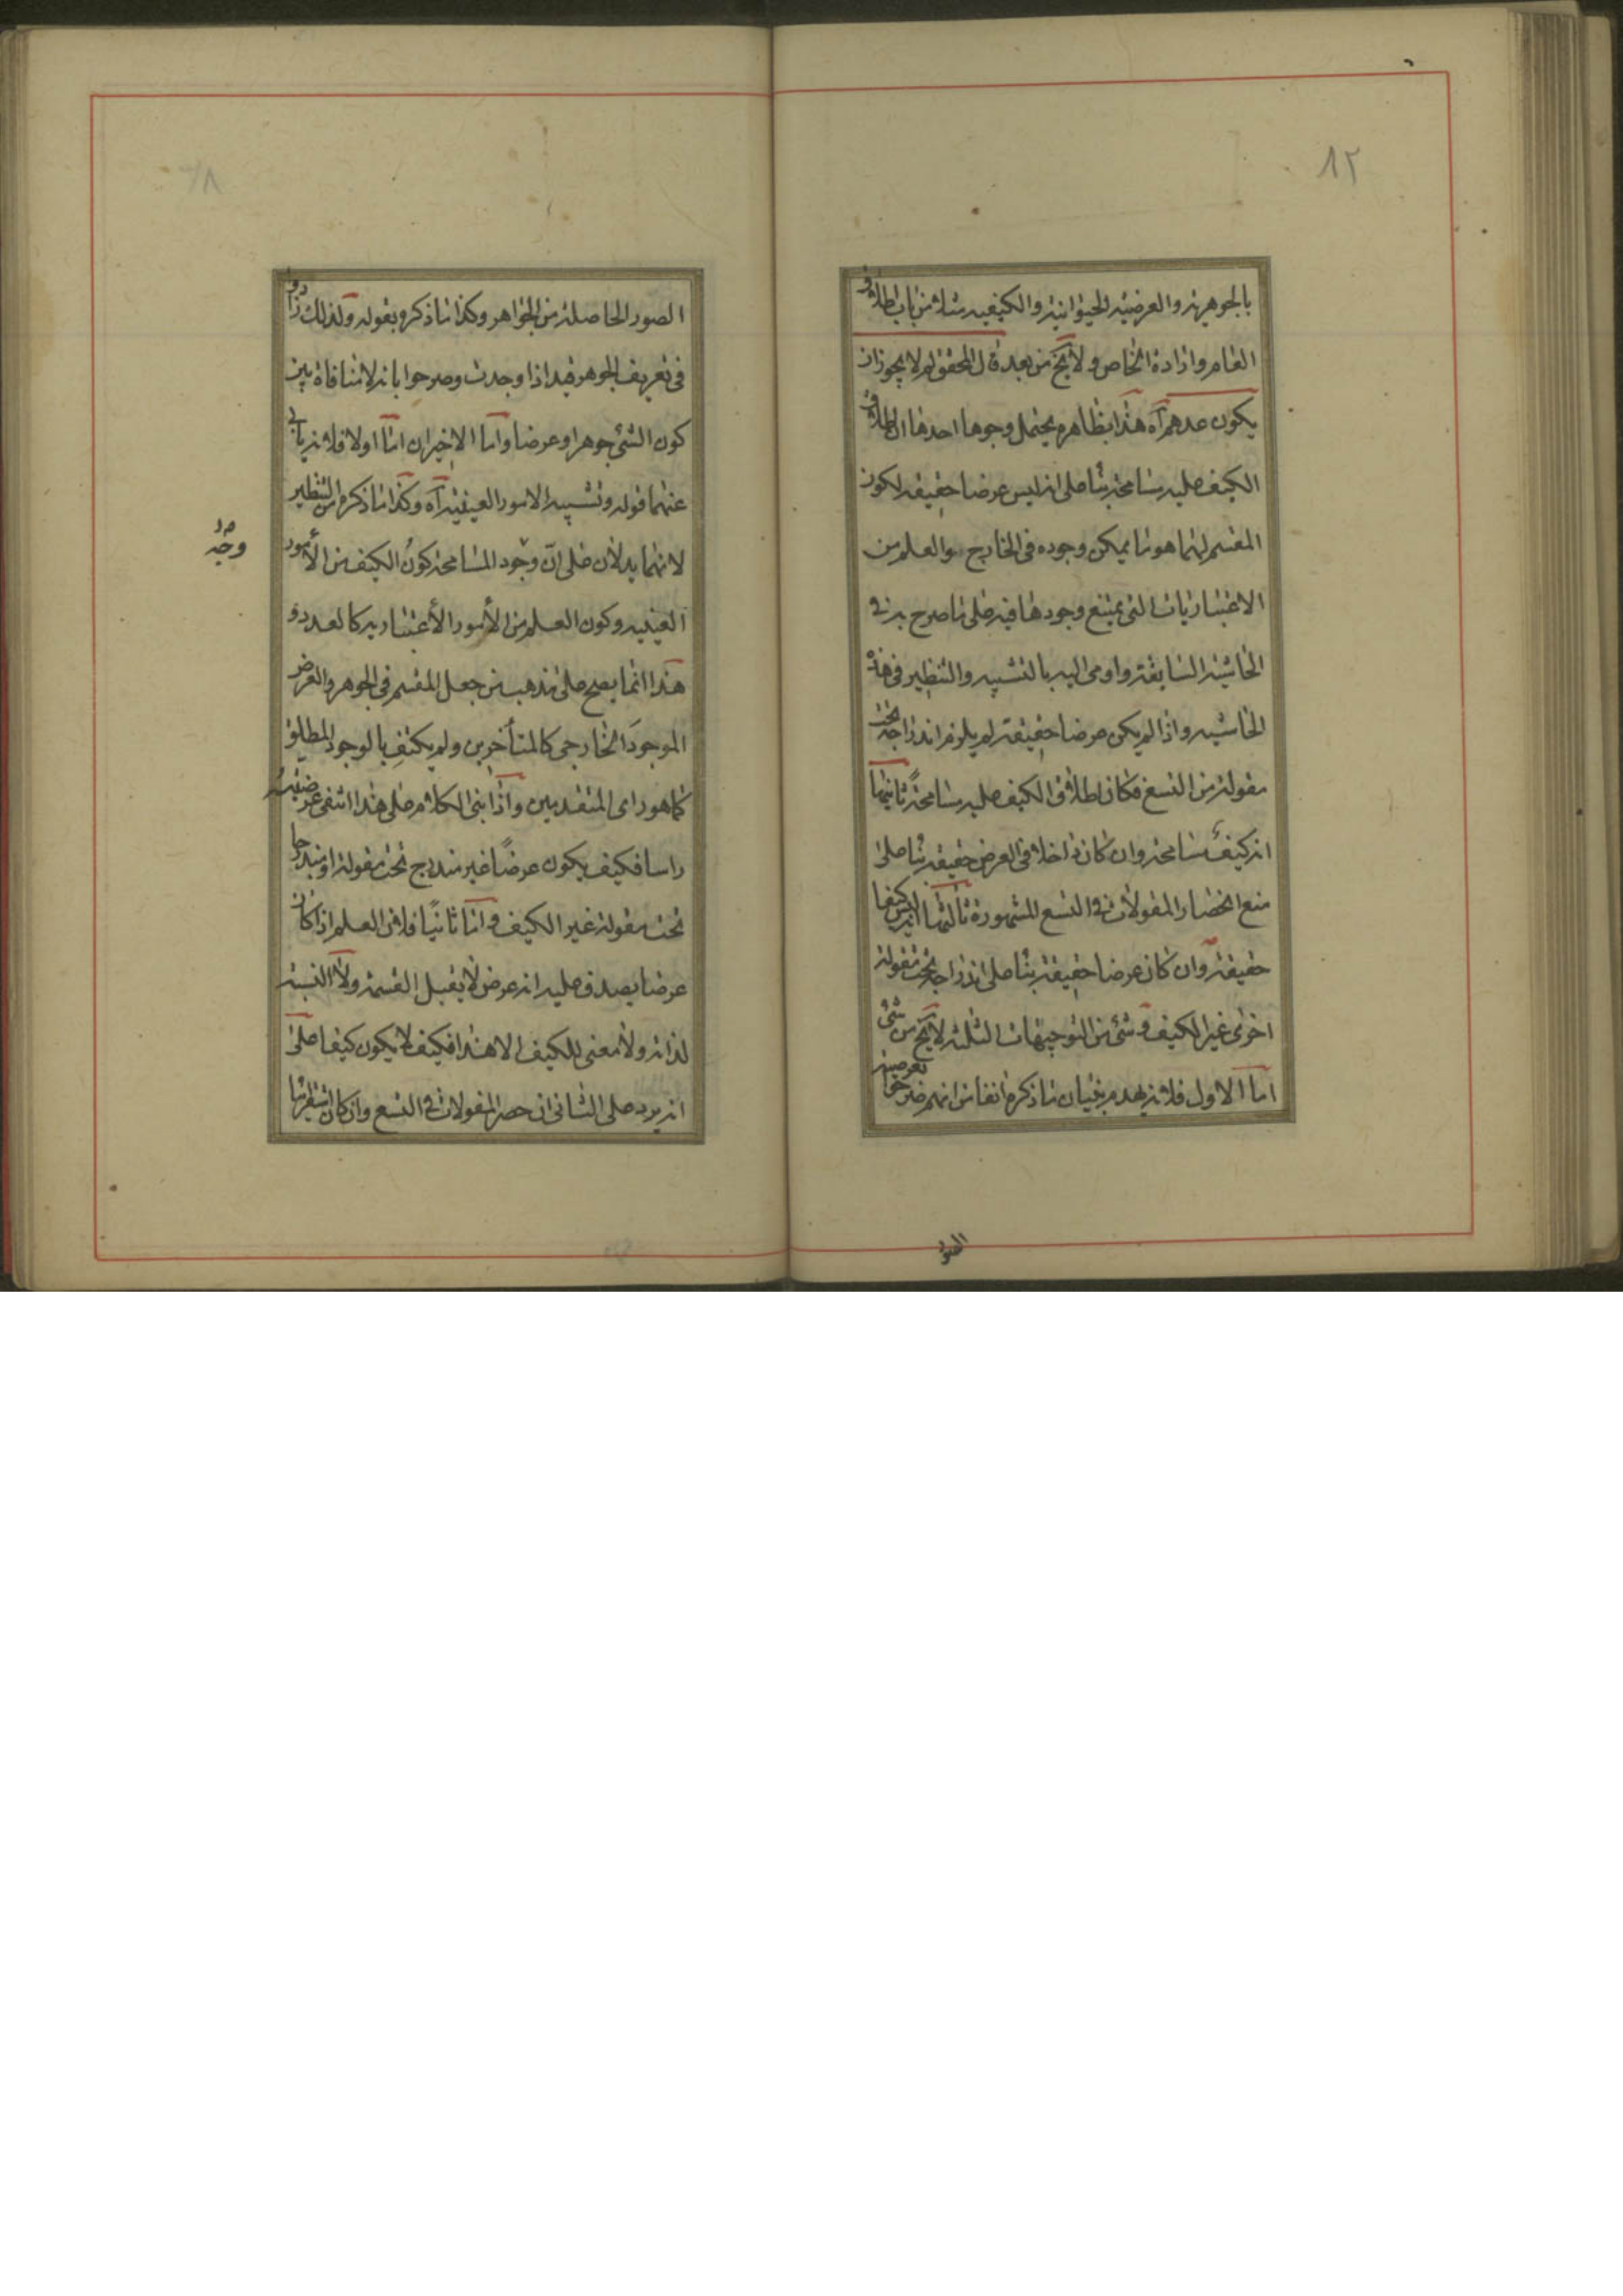 ٨٢
بالجوهرية والعرضية الحيوانية والكيفية مثلا من باب اطلاق
العام وارادة الخاص ولا يخ من بعد قال المحقق لم لا يجوز ان
يكون عدهم آه هذا بظاهره يحتمل وجوها احدها ان اطلاق
الكيف عليه مسامحة بناء على انه ليس عرضا حقيقة لكون
المقسم لهما هو ما يمكن وجوده فى الخارج والعلم من
الاعتباريات التى يمتنع وجودها فيه على ما صرح به فى
الحاشية السابقة واومى اليه بالتشبيه والتنظير فى هذه
الحاشية واذا لم يكن عرضا حقيقة لم يلزم اندراجه تحت
مقولة من التسع فكان اطلاق الكيف عليه مسامحة ثانيها
انه كيف مسامحة وان كان داخلا فى العرض حقيقة بناء على
منع انحصار المقولات فى التسع المشهورة ثالثها انه ليس كيفا
حقيقة وان كان عرضا حقيقة بناء على اندراجه تحت مقولة
اخرى غير الكيف وشئ من التوجيهات الثلثة لا يخ من شئ
اما الاول فلانه يهدم بنيان ما ذكره انفا من انهم صرحوا بعرضية
الصو
الصور الحاصلة من الجواهر وكذا ما ذكره بقوله ولذلك زادوا
فى تعريف الجوهر قيد اذا وجدت وصرحوا بانه لا منافاة بين
كون الشئ جوهرا وعرضا واما الاخيران اما اولا فلانه يأبى
عنهما قوله وتشبيه الامور العينية آه وكذا ما ذكره من التنظير
لانهما يدلان على ان وجود المسامحة كون الكيف من الأمور
وجه
العينية وكون العلم من الأمور الأعتبارية كالعدد و
هذا انما يصح على مذهب من جعل المقسم فى الجوهر والعرض
الموجود الخارجى كالمتأخرين ولم يكتف بالوجود المطلق
كما هو راى المتقدمين واذا بنى الكلام على هذا انتفى عرضيته
راسا فكيف يكون عرضًا غير مندرج تحت مقولة او مندرجا
تحت مقولة غير الكيف واما ثانيًا فلان العلم اذا كان
عرضا يصدق عليه انه عرض لا يقبل القسمة ولا النسبة
لذاته ولا معنى للكيف الا هذا فكيف لا يكون كيفا على
انه يرد على الثانى ان حصر المقولات فى التسع وان كان استقرائيا